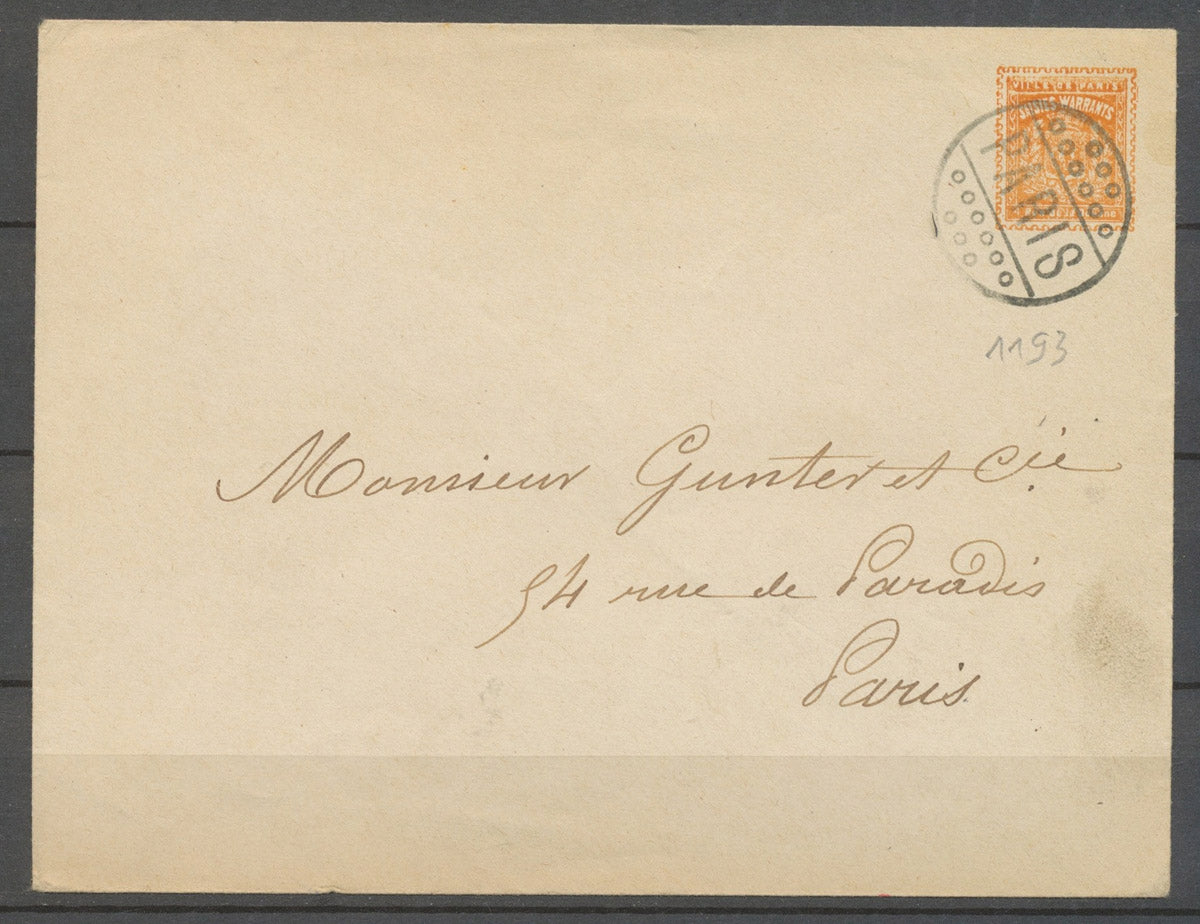 VILLE DE PARIS
WARRANTS
PARIS
1193
Monsieur Gunter et Cie
54 rue de Paradis
Paris